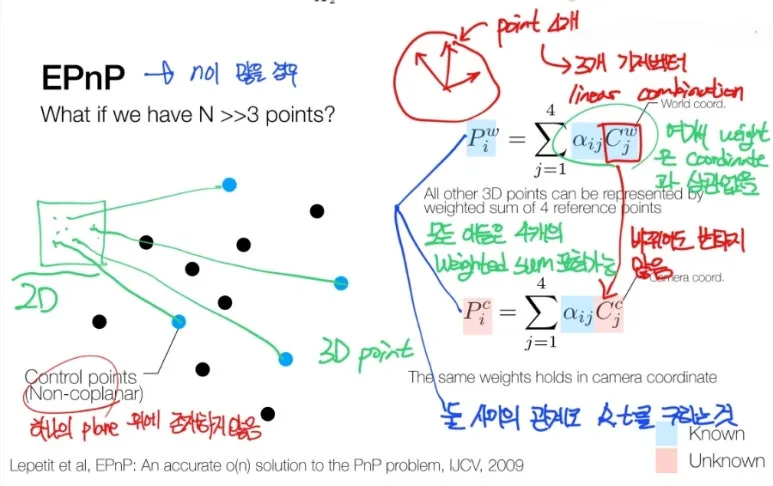 EPnP → n이 많을 경우
What if we have N >>3 points?
point 4개
→ 3개 기저벡터
linear combination
World coord.
P_i^w = \sum_{j=1}^{4} α_{ij} C_j^w
여기서 weight
은 coordinate
과 상관없음
All other 3D points can be represented by
weighted sum of 4 reference points
모든 애들은 4개의
weighted sum 표현가능
바뀌어도 변하지
않음
Camera coord.
P_i^c = \sum_{j=1}^{4} α_{ij} C_j^c
The same weights holds in camera coordinate
둘 사이의 관계로 R,t를 구하는 것
2D
3D point
Control points
(Non-coplanar)
하나의 plane 위에 존재하지않음
Known
Unknown
Lepetit et al, EPnP: An accurate o(n) solution to the PnP problem, IJCV, 2009